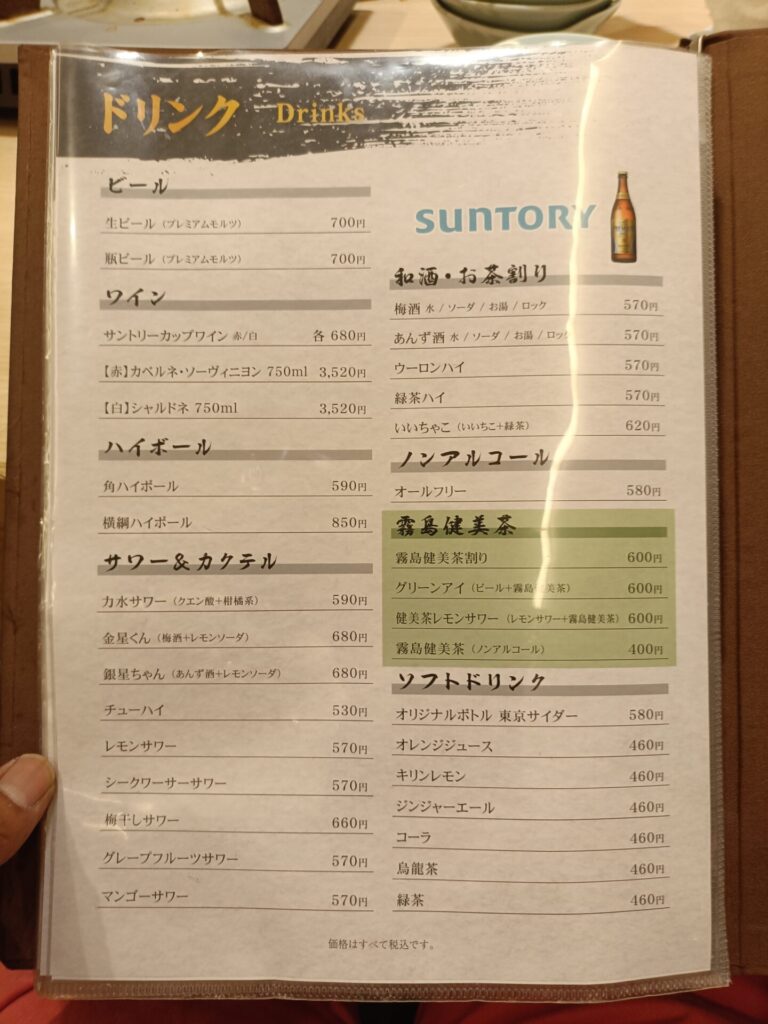 ドリンク Drinks
ビール
生ビール（プレミアムモルツ） 700円
瓶ビール（プレミアムモルツ） 700円
ワイン
サントリーカップワイン 赤/白 各 680円
【赤】カベルネ・ソーヴィニヨン 750ml 3,520円
【白】シャルドネ 750ml 3,520円
ハイボール
角ハイボール 590円
横綱ハイボール 850円
サワー＆カクテル
力水サワー（クエン酸+柑橘系） 590円
金星くん（梅酒+レモンソーダ） 680円
銀星ちゃん（あんず酒+レモンソーダ） 680円
チューハイ 530円
レモンサワー 570円
シークワーサーサワー 570円
梅干しサワー 660円
グレープフルーツサワー 570円
マンゴーサワー 570円
SUNTORY
和酒・お茶割り
梅酒 水 / ソーダ / お湯 / ロック 570円
あんず酒 水 / ソーダ / お湯 / ロック 570円
ウーロンハイ 570円
緑茶ハイ 570円
いいちゃこ（いいちこ+緑茶） 620円
ノンアルコール
オールフリー 580円
霧島健美茶
霧島健美茶割り 600円
グリーンアイ（ビール+霧島健美茶） 600円
健美茶レモンサワー（レモンサワー+霧島健美茶） 600円
霧島健美茶（ノンアルコール） 400円
ソフトドリンク
オリジナルボトル 東京サイダー 580円
オレンジジュース 460円
キリンレモン 460円
ジンジャーエール 460円
コーラ 460円
烏龍茶 460円
緑茶 460円
価格はすべて税込です。